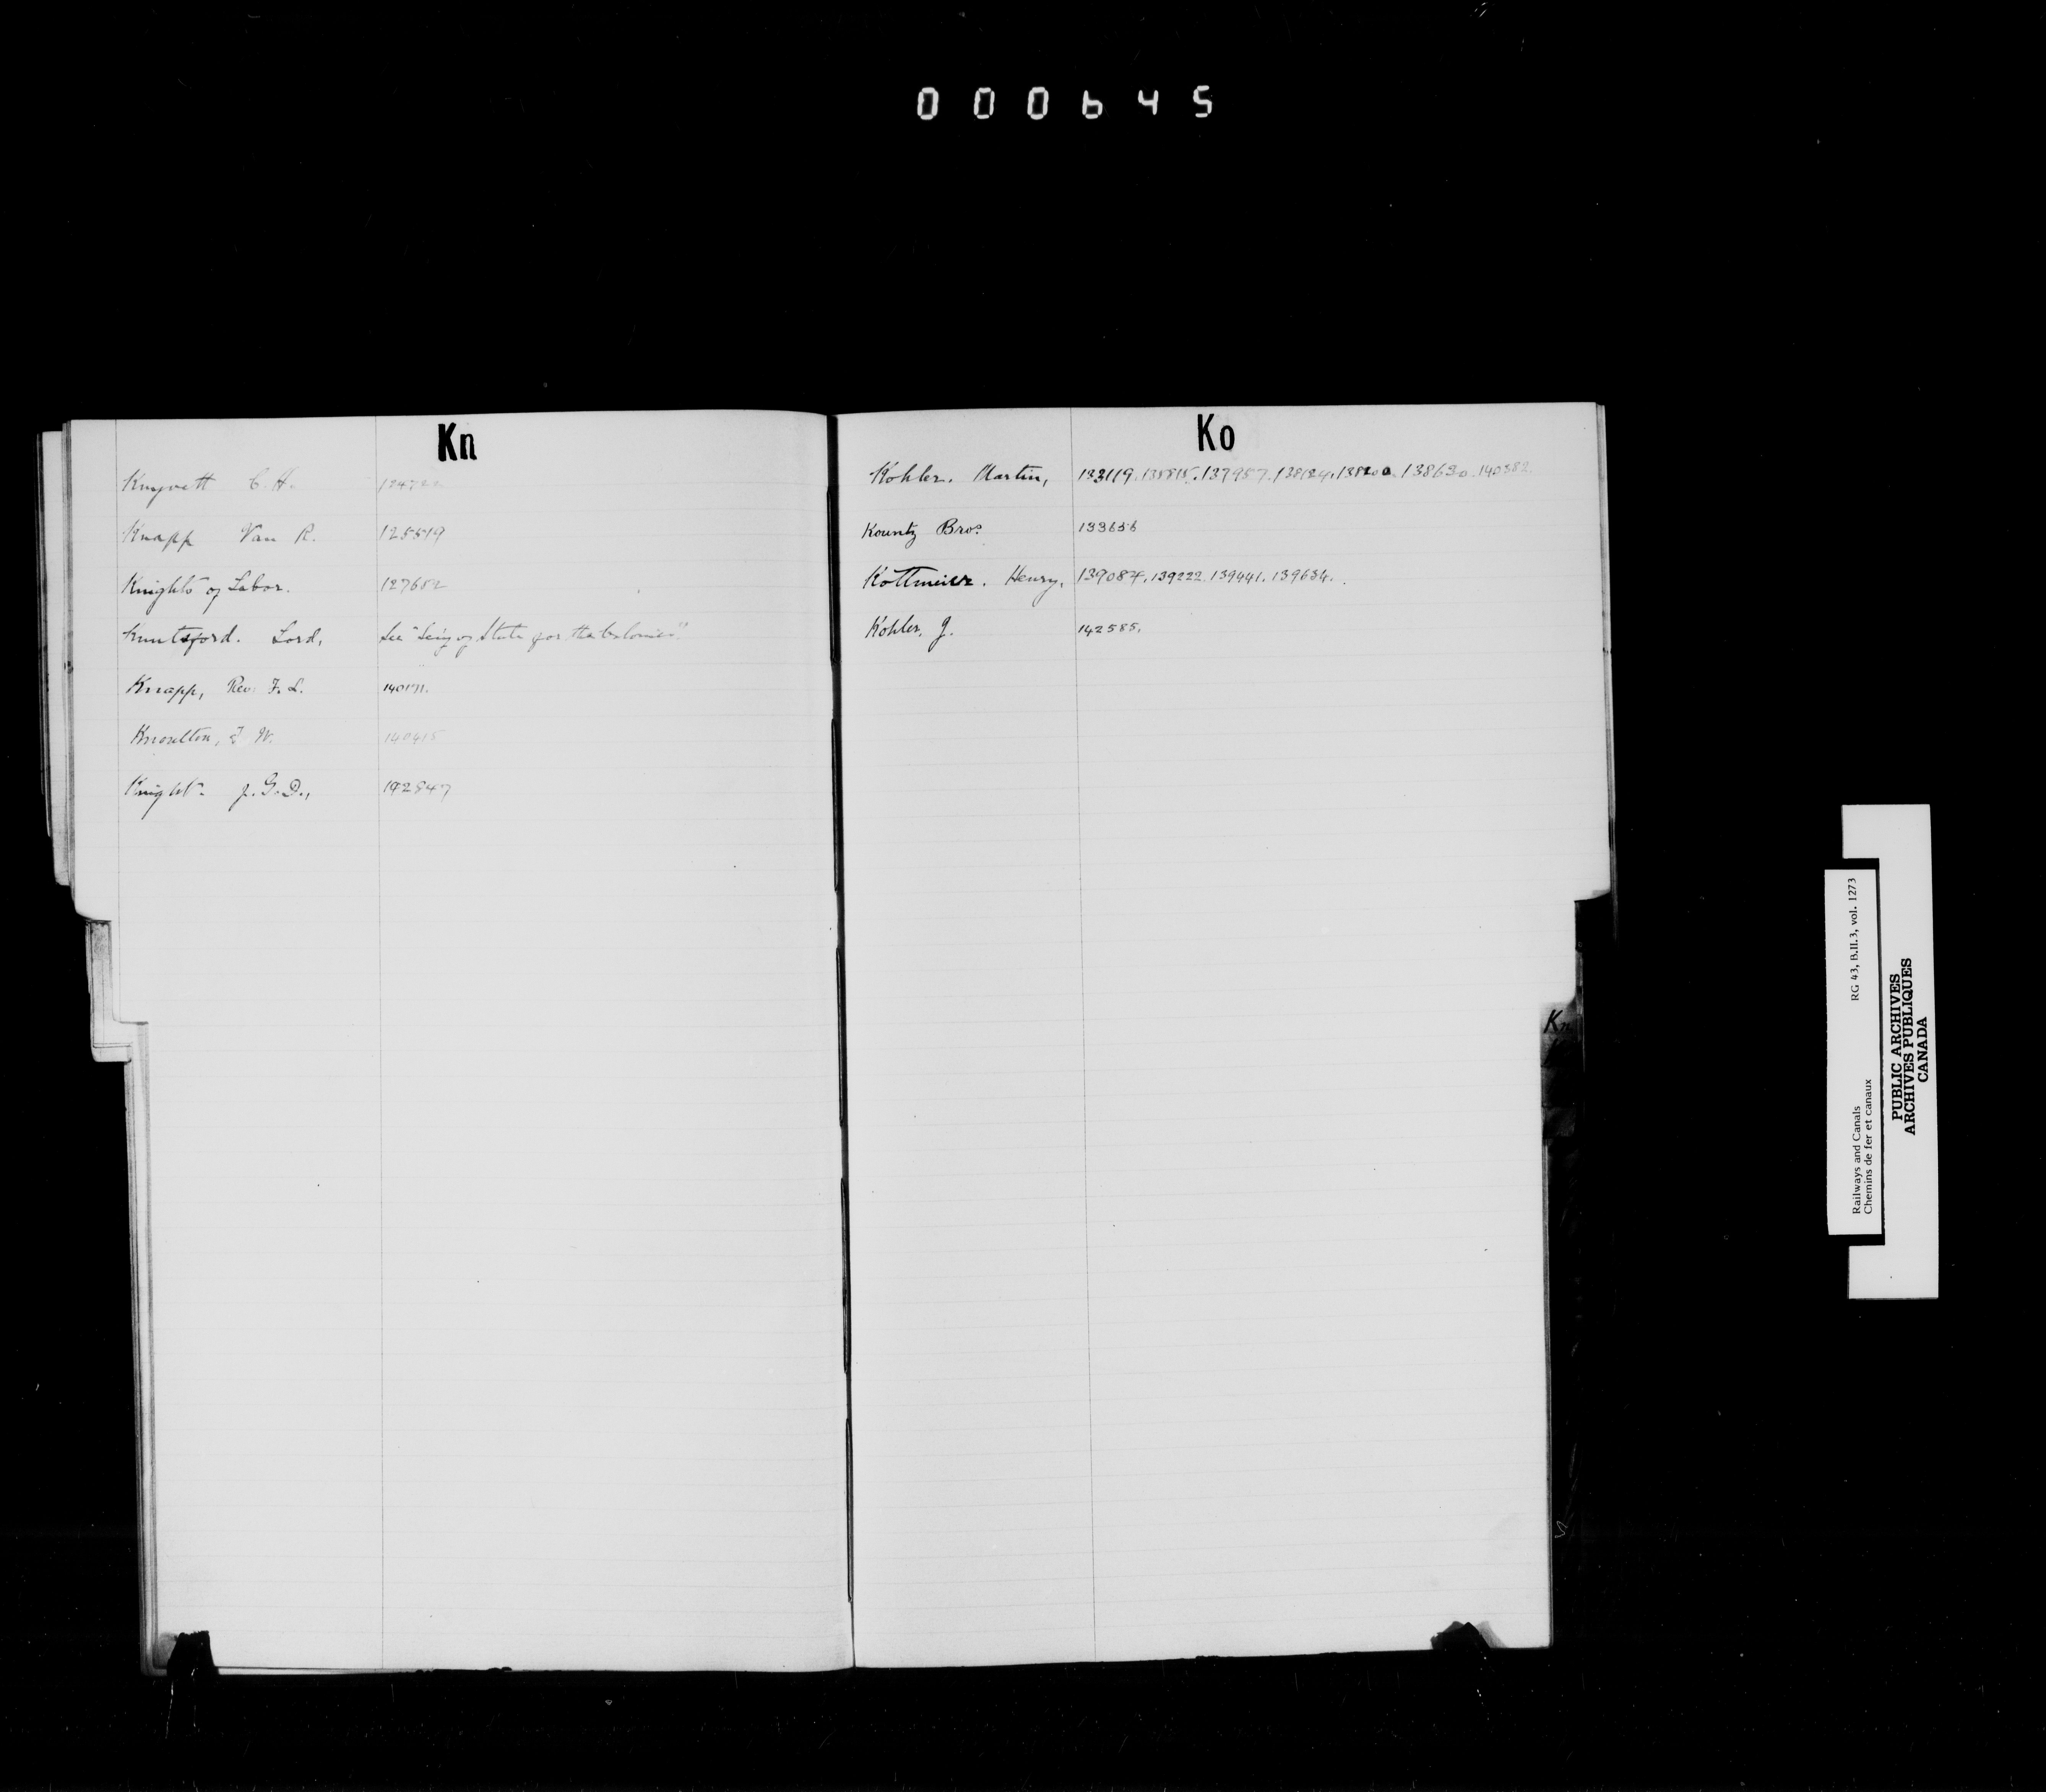 000645
Kn
Knyvett C. H.
Knapp Van R. 125519
Knights of Labor. 127652
Knutsford. Lord, See "Secy of State for the Colonies"
Knapp, Rev. F. L. 140171.
Knowlton, F. W. 140415
Knight J. G. D., 142847
Ko
Kohler. Martin, 133119. 135815. 137957. 138124. 138200. 138630. 140382.
Kountz Bros. 133656
Kottmeier. Henry, 139087. 139222. 139441. 139634.
Kohler, J. 142585.
Kn
Railways and Canals RG 43, B.II.3, vol. 1273
Chemins de fer et canaux
PUBLIC ARCHIVES
ARCHIVES PUBLIQUES
CANADA